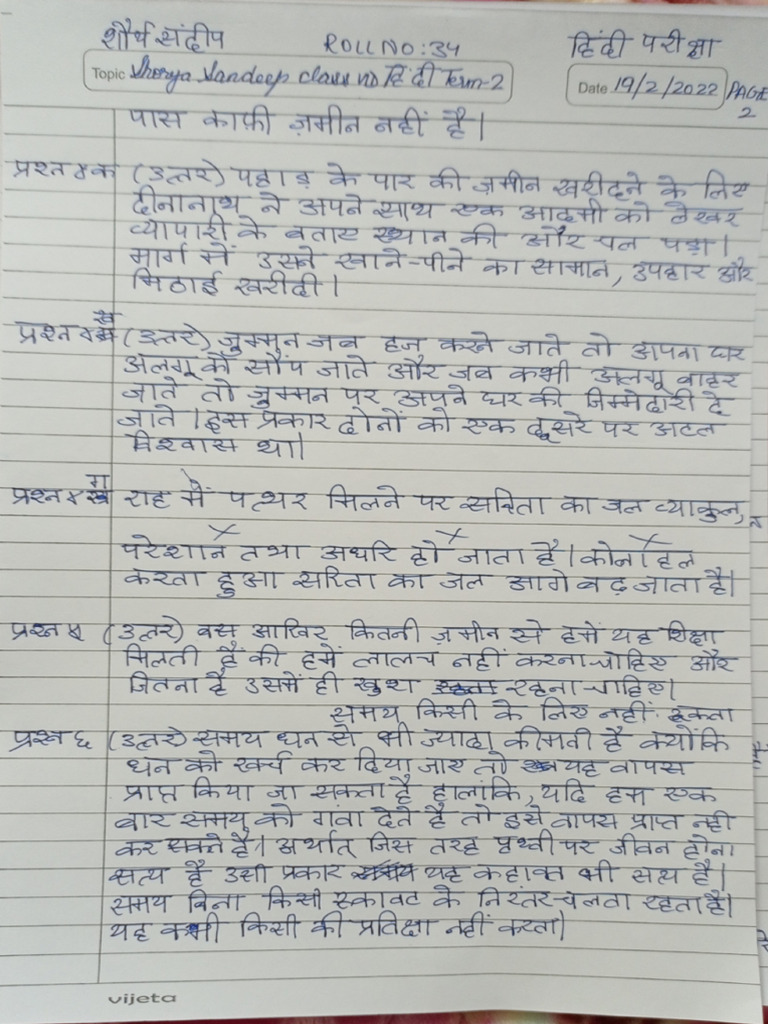 शौर्य संदीप ROLL NO: 34 हिंदी परीक्षा
Topic Shorya Sandeep class हिंदी Term-2 Date 19/2/2022 PAGE 2
पास काफ़ी ज़मीन नहीं है।
प्रश्न ४क (उत्तर) पहाड़ के पार की ज़मीन खरीदने के लिए
दीनानाथ ने अपने साथ एक आदमी को लेकर
व्यापारी के बताए स्थान की और चल पड़ा।
मार्ग में उसने खाने-पीने का सामान, उपहार और
मिठाई खरीदी।
प्रश्न ४ख (उत्तर) जुम्मन जब हज करने जाते तो अपना घर
अलगू को सौंप जाते और जब कभी अलगू बाहर
जाते तो जुम्मन पर अपने घर की जिम्मेदारी दे
जाते। इस प्रकार दोनों को एक दूसरे पर अटल
विश्वास था।
प्रश्न ४ग राह में पत्थर मिलने पर सरिता का जल व्याकुल,
परेशान तथा अधीर हो जाता है।
करता हुआ सरिता का जल आगे बढ़ जाता है।
प्रश्न ५ (उत्तर) बस आखिर कितनी ज़मीन से हमें यह शिक्षा
मिलती है की हमें लालच नहीं करना चाहिए और
जितना है उसमें ही खुश रहना चाहिए।
समय किसी के लिए नहीं रुकता
प्रश्न ६ (उत्तर) समय धन से भी ज्यादा कीमती है क्योंकि
धन को खर्च कर दिया जाए तो यह वापस
प्राप्त किया जा सकता है हालांकि, यदि हम एक
बार समय को गंवा देते है तो इसे वापस प्राप्त नहीं
कर सकते है। अर्थात् जिस तरह पृथ्वी पर जीवन होना
सत्य है उसी प्रकार यह कहावत भी सत्य है।
समय बिना किसी रुकावट के निरंतर चलता रहता है।
यह कभी किसी की प्रतिक्षा नहीं करता।
vijeta